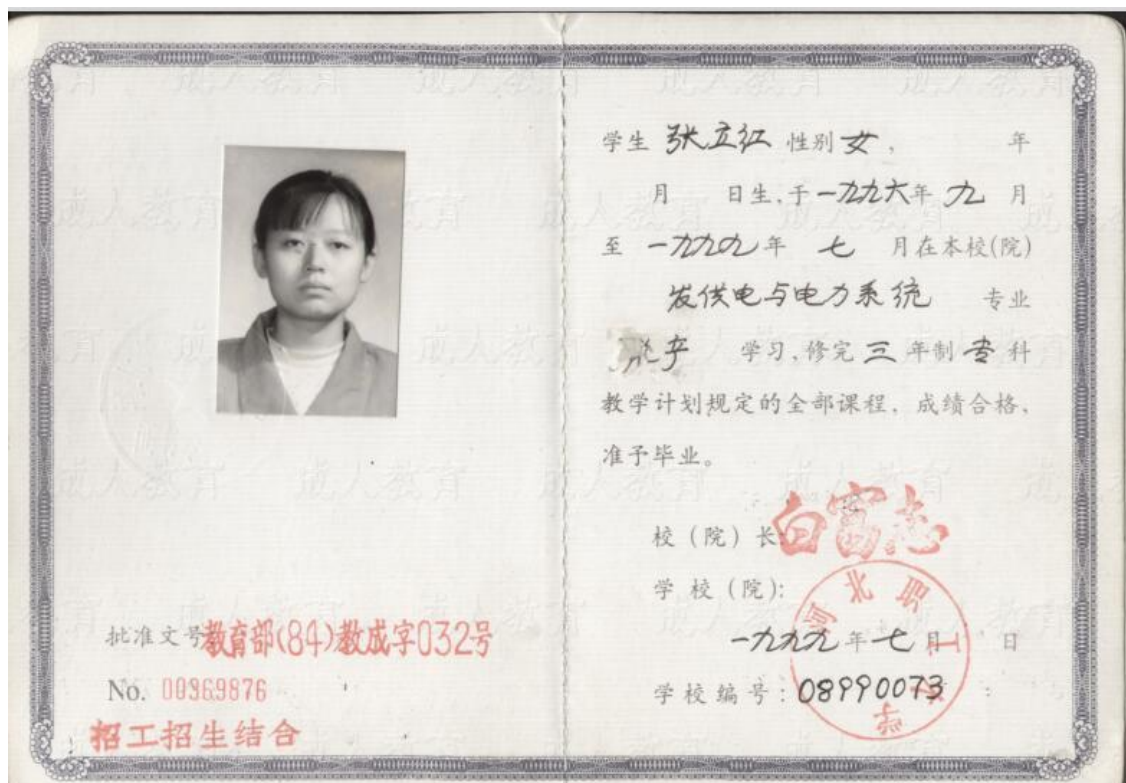 批准文号教育部(84)教成字032号
No. 00969876
招工招生结合
学生 张立红 性别 女， 年
月 日生，于一九九六年 九 月
至 一九九九 年 七 月在本校(院)
发供电与电力系统 专业
学习，修完 三 年制 专 科
教学计划规定的全部课程，成绩合格，
准予毕业。
校（院）长：白富志
学校（院）：
河北职工大学
一九九九 年 七 月 日
学校编号：08990073
成人教育